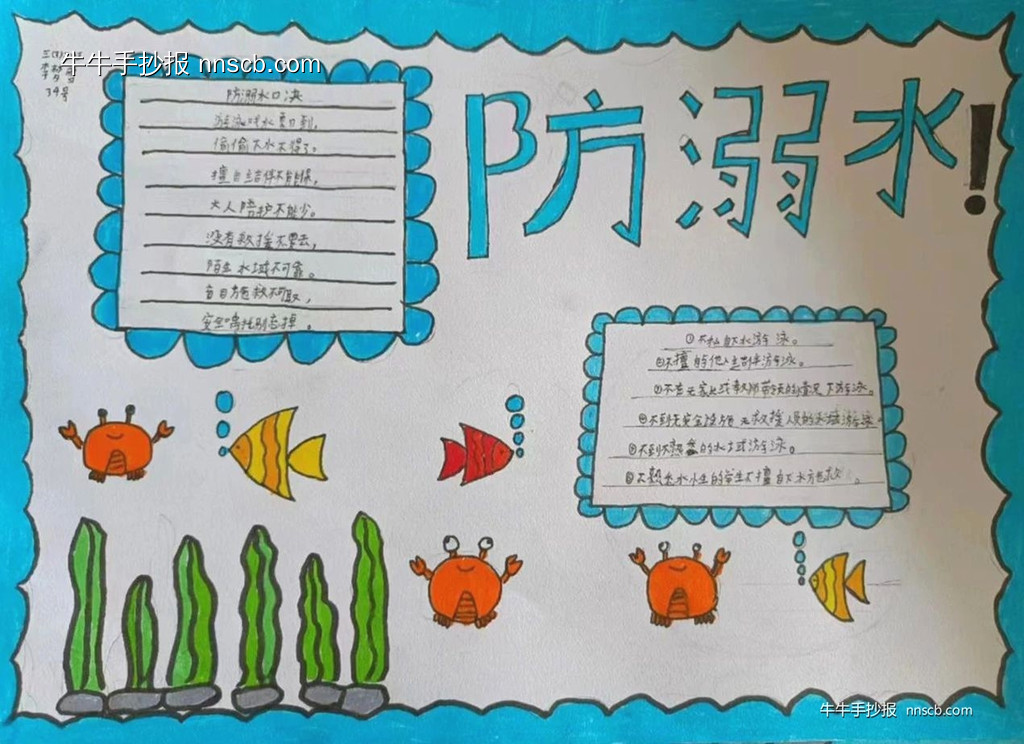 三(8)
34号
牛牛手抄报 nnscb.com
防溺水!
防溺水口诀
游泳戏水要口到,
偷偷下水不得了。
擅自结伴不能保,
大人陪护不能少。
没有救援不要去,
陌生水域不可靠。
盲目施救不可取,
安全嘱托别忘掉。
①不私自下水游泳。
②不擅自与他人结伴游泳。
③不在无家长或教师带领的情况下游泳。
④不到无安全设施、无救援人员的水域游泳
⑤不到不熟悉的水域游泳。
⑥不熟悉水性的学生不擅自下水施救。
牛牛手抄报 nnscb.com